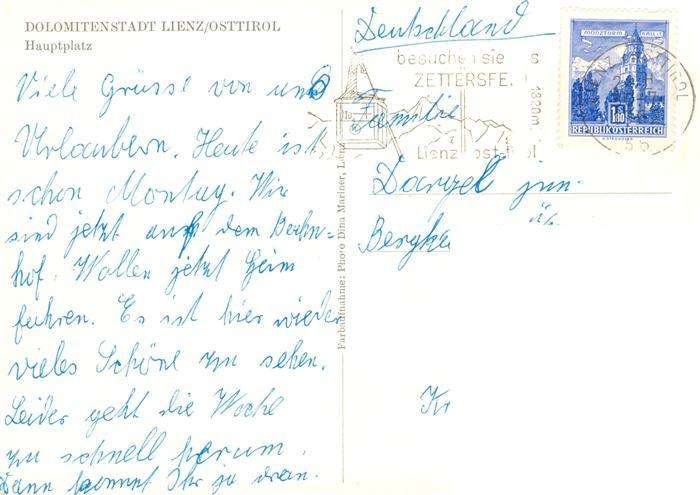 DOLOMITENSTADT LIENZ/OSTTIROL
Hauptplatz
Viele Grüsse von uns
Urlaubern. Heute ist
schon Montag. Wir
sind jetzt auf dem Bahn-
hof. Wollen jetzt heim
fahren. Es ist hier wieder
vieles Schöne zu sehen.
Leider geht die Woche
zu schnell herum.
Dann kommt Ihr ja dran.
Farbaufnahme: Photo Dina Mariner, Lienz
Deutschland
Familie
Dargel jun.
Bergha
Kr
besuchen sie
ZETTERSFE.
1820m
Lienz ost
MÜNZTURM HALL I. T.
1S80
REPUBLIK ÖSTERREICH